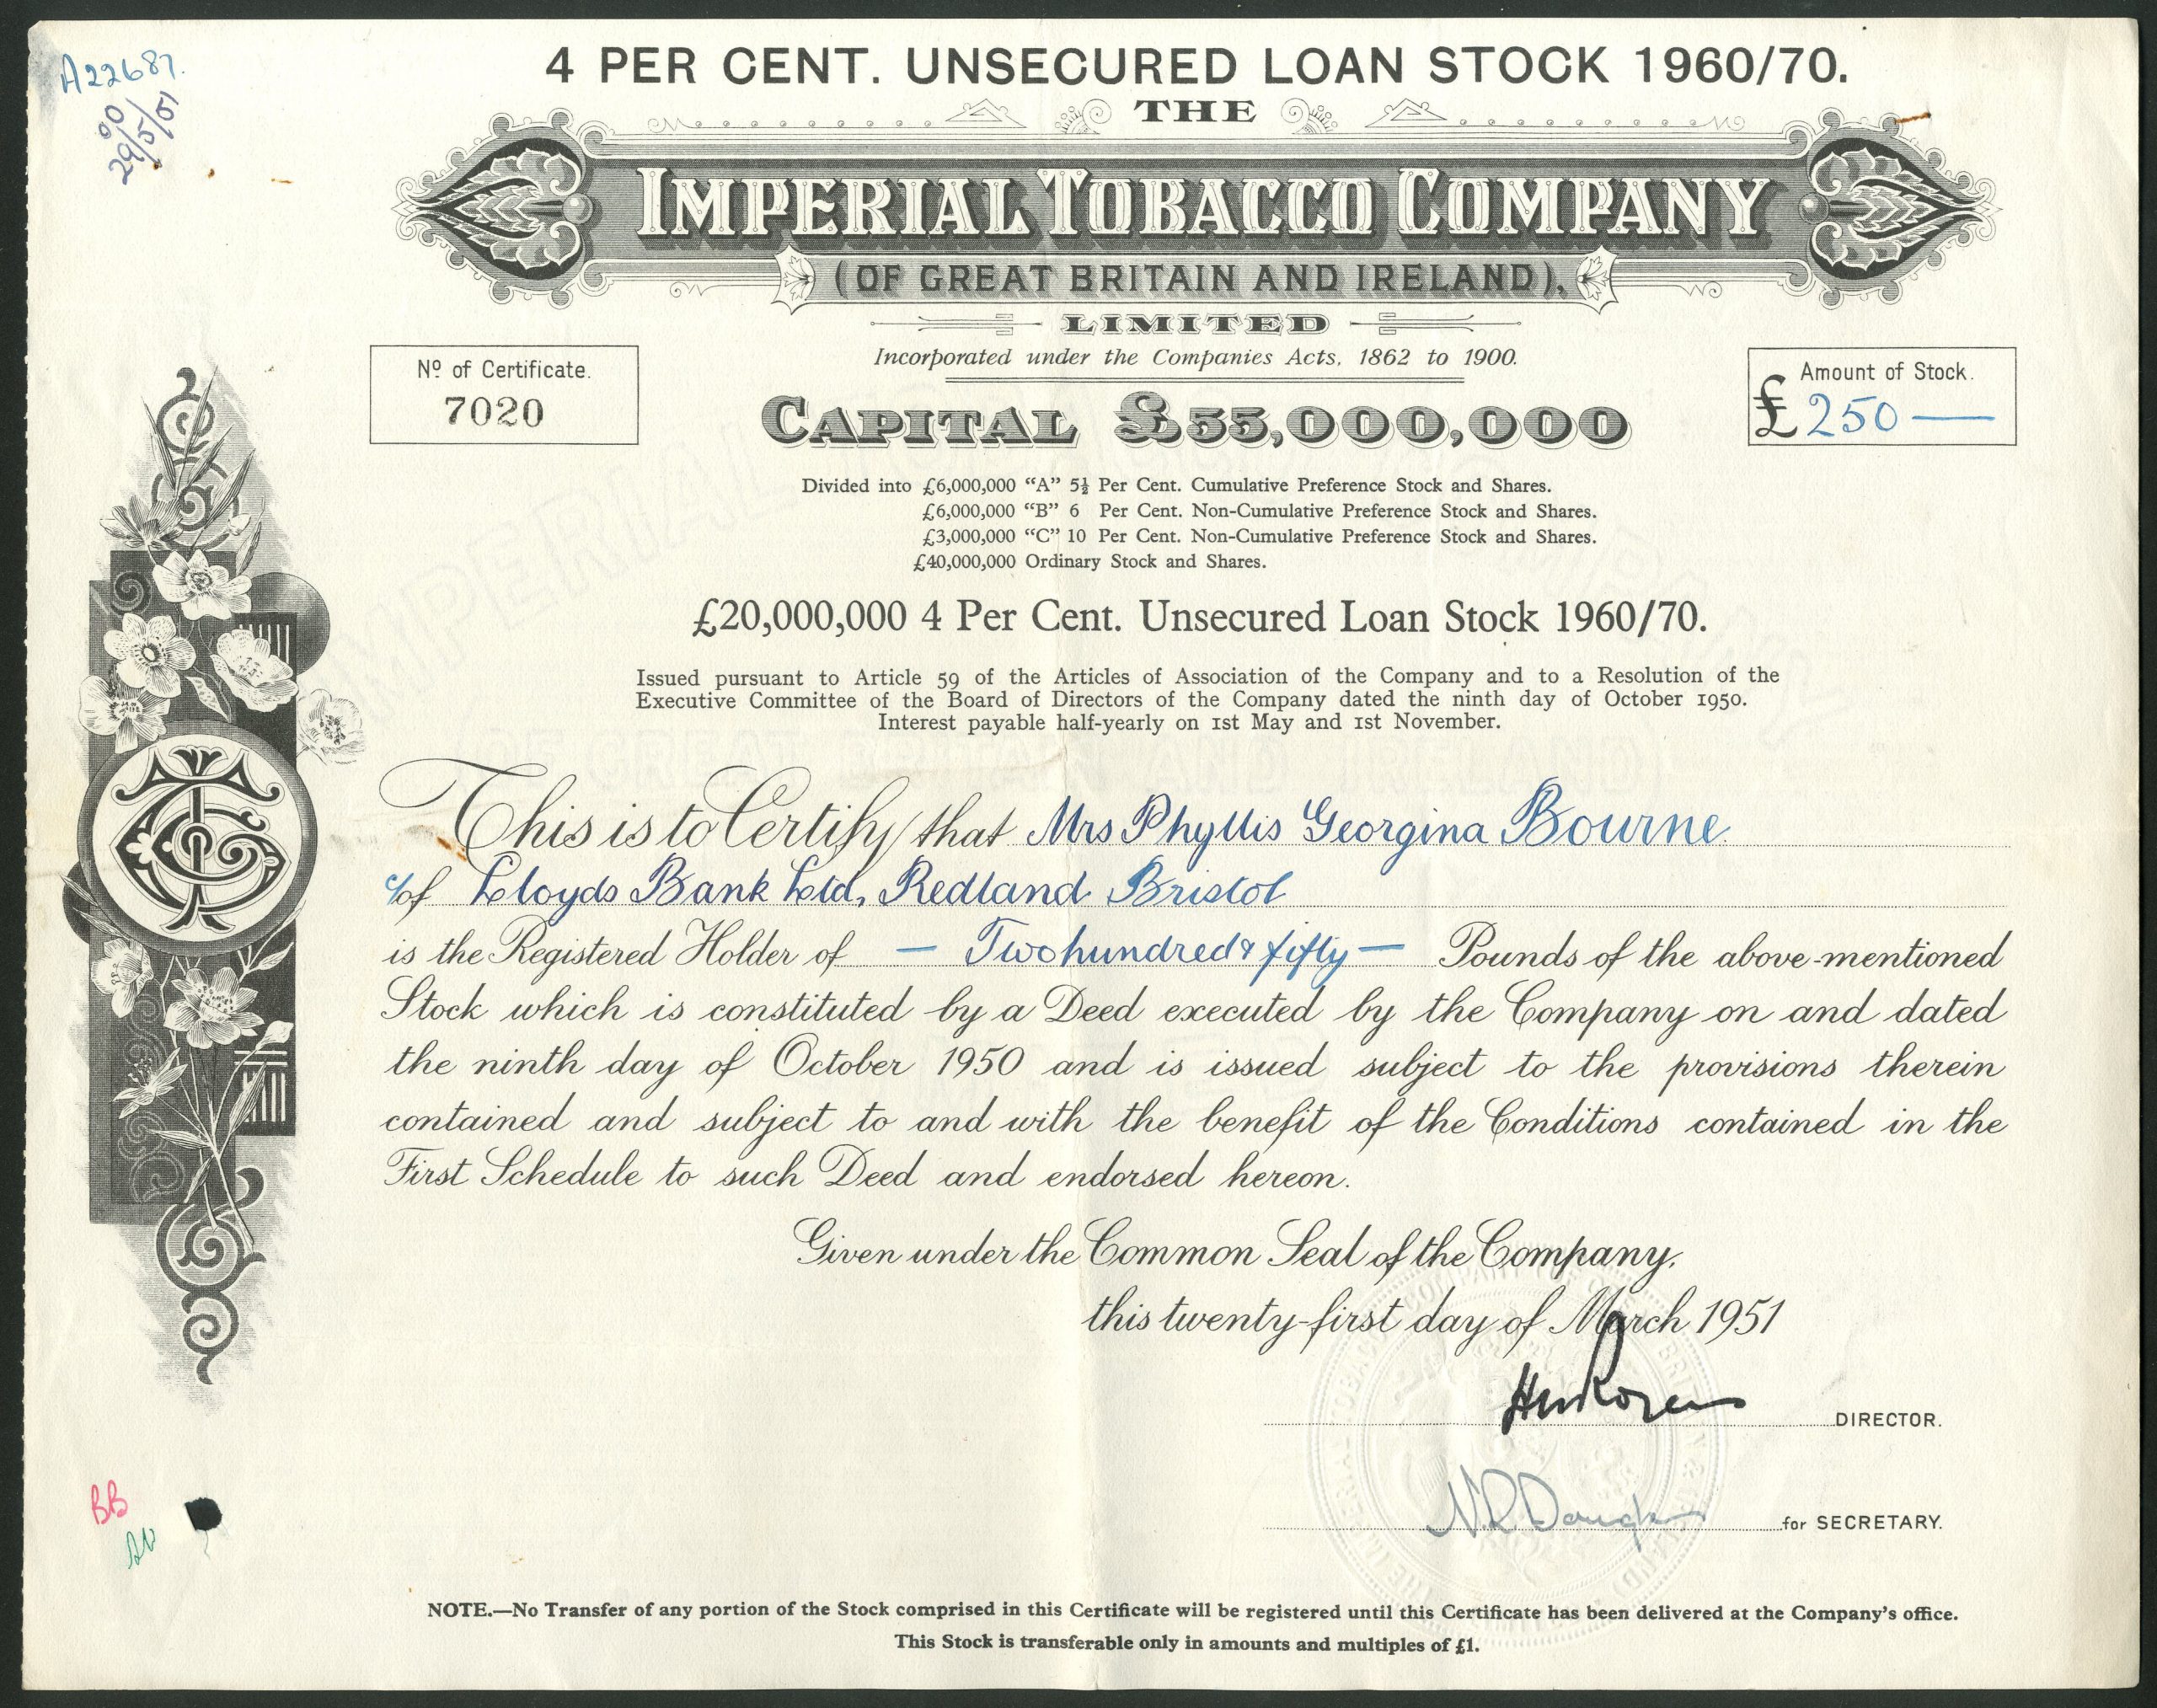 A22687.
29/5/51
4 PER CENT. UNSECURED LOAN STOCK 1960/70.
THE
IMPERIAL TOBACCO COMPANY
(OF GREAT BRITAIN AND IRELAND),
LIMITED
Incorporated under the Companies Acts, 1862 to 1900.
Nº of Certificate.
7020
Amount of Stock.
£250 —
CAPITAL £55,000,000
Divided into £6,000,000 “A” 5½ Per Cent. Cumulative Preference Stock and Shares.
£6,000,000 “B” 6 Per Cent. Non-Cumulative Preference Stock and Shares.
£3,000,000 “C” 10 Per Cent. Non-Cumulative Preference Stock and Shares.
£40,000,000 Ordinary Stock and Shares.
£20,000,000 4 Per Cent. Unsecured Loan Stock 1960/70.
Issued pursuant to Article 59 of the Articles of Association of the Company and to a Resolution of the
Executive Committee of the Board of Directors of the Company dated the ninth day of October 1950.
Interest payable half-yearly on 1st May and 1st November.
This is to Certify that Mrs Phyllis Georgina Bourne
c/of Lloyds Bank Ltd, Redland Bristol
is the Registered Holder of — Two hundred & fifty — Pounds of the above-mentioned
Stock which is constituted by a Deed executed by the Company on and dated
the ninth day of October 1950 and is issued subject to the provisions therein
contained and subject to and with the benefit of the Conditions contained in the
First Schedule to such Deed and endorsed hereon.
Given under the Common Seal of the Company,
this twenty-first day of March 1951
DIRECTOR.
for SECRETARY.
BB
NOTE.—No Transfer of any portion of the Stock comprised in this Certificate will be registered until this Certificate has been delivered at the Company's office.
This Stock is transferable only in amounts and multiples of £1.